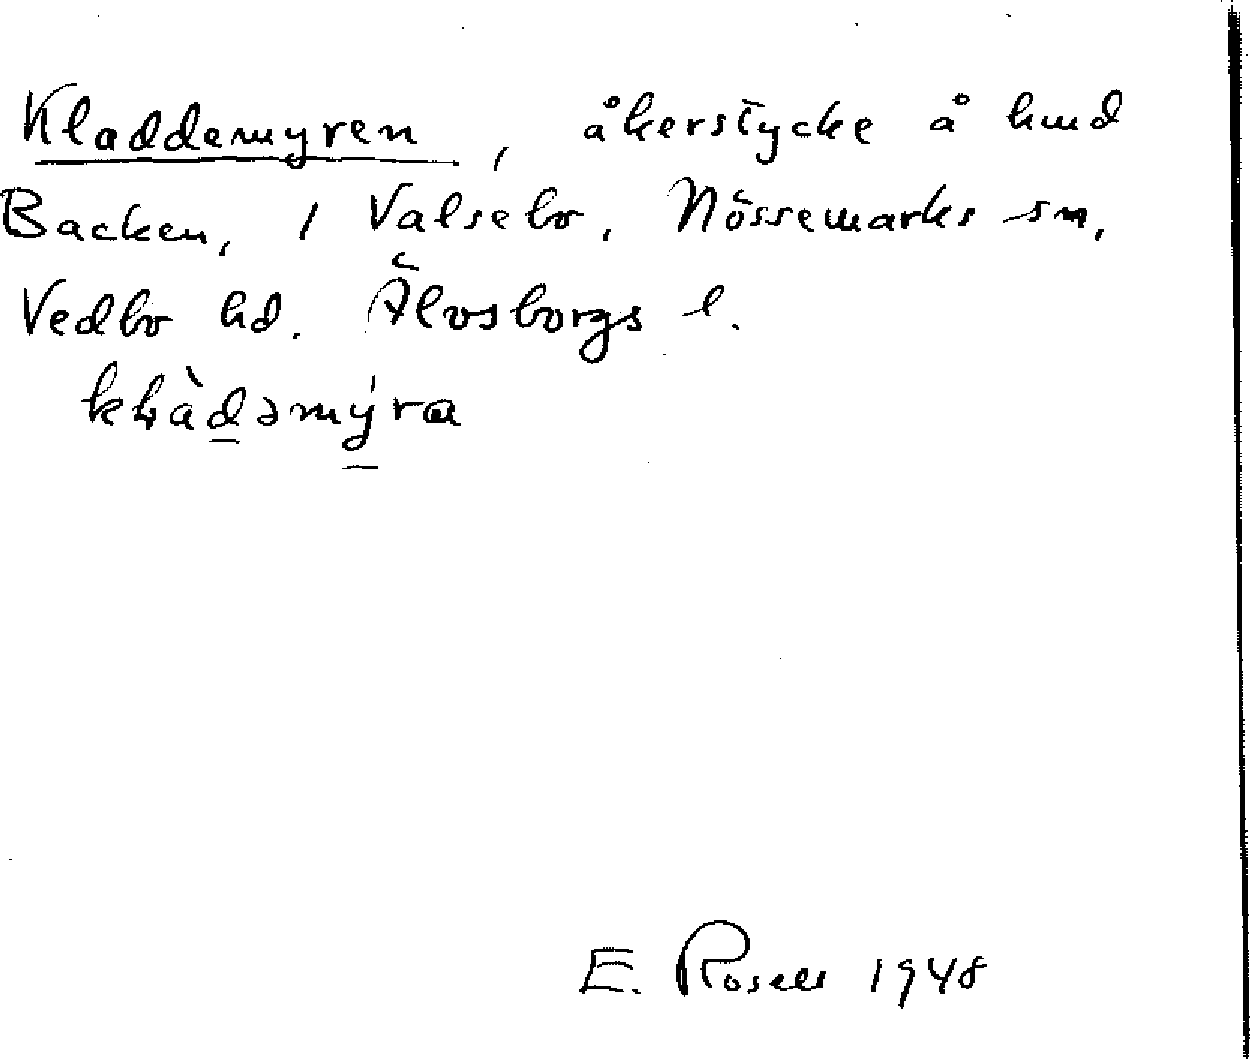 Kladdemyren, åkerstycke å hmd
Backen, 1 Valsebo, Nössemarks sn,
Vedbo hd. Älvsborgs l.
kɫàdəmýra
E. Rosell 1948